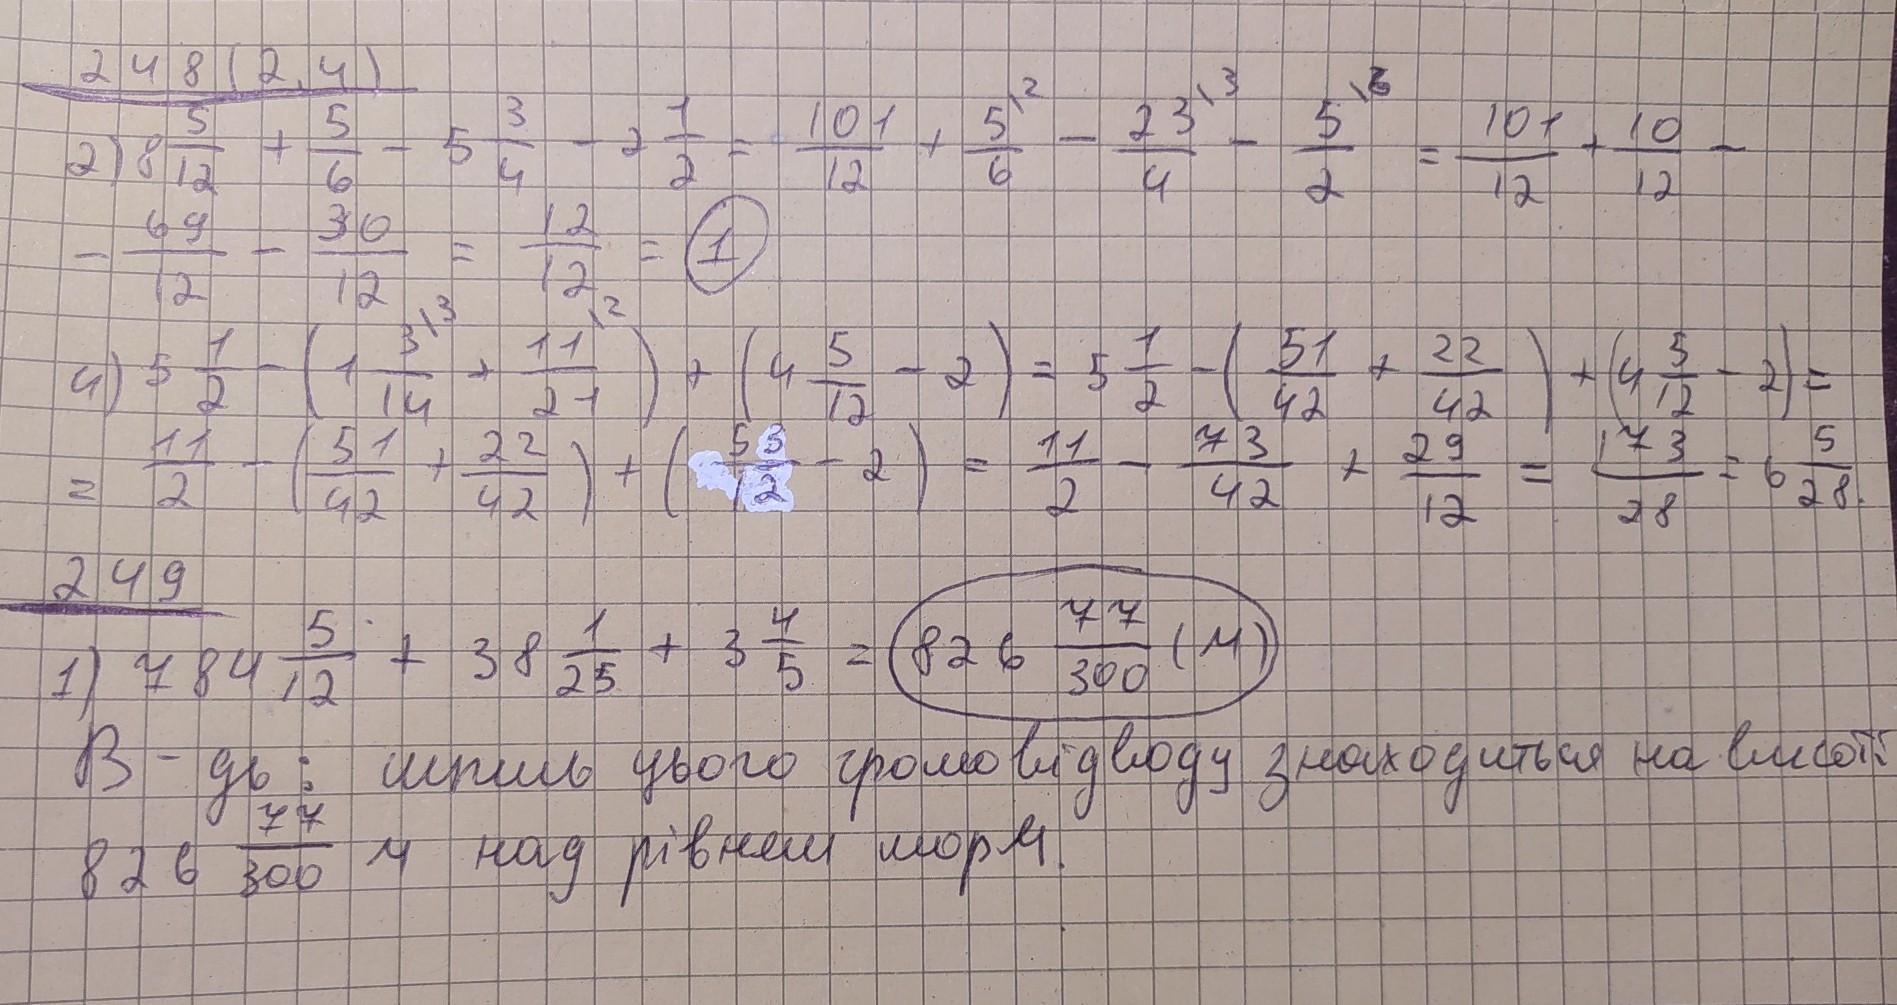 248(2,4)
2) 8 5/12 + 5/6 - 5 3/4 - 2 1/2 = 101/12 + 5\2/6 - 23\3/4 - 5\6/2 = 101/12 + 10/12 -
- 69/12 - 30/12 = 12/12 = 1
4) 5 1/2 - (1 3\3/14 + 11\2/21) + (4 5/12 - 2) = 5 1/2 - (51/42 + 22/42) + (4 5/12 - 2) =
= 11/2 - (51/42 + 22/42) + (53/12 - 2) = 11/2 - 73/42 + 29/12 = 173/28 = 6 5/28.
249
1) 784 5/12 + 38 1/25 + 3 4/5 = 826 77/300 (м)
В-дь: шпиль цього громовідводу знаходиться на висоті
826 77/300 м над рівнем моря.